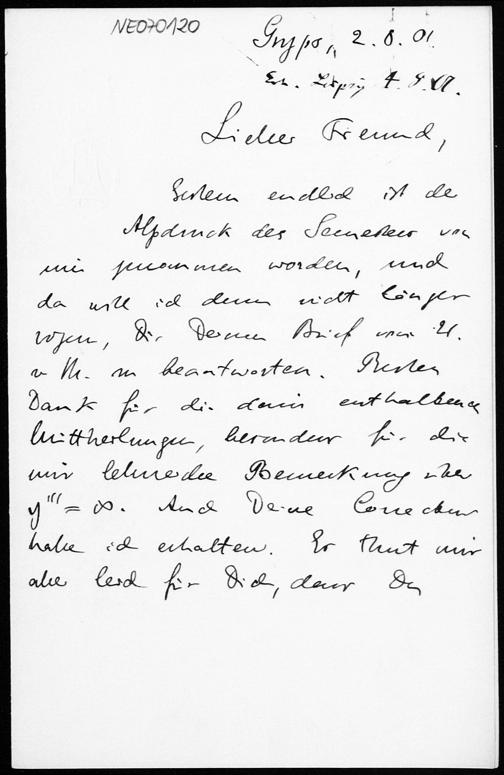 NE070120
Gryps, 2. 8. 01.
Erh. Leipzig 4. 9. 01.
Lieber Freund,
Gestern endlich ist der
Alpdruck des Semesters von
mir genommen worden, und
da will ich denn nicht länger
zögern, Dir Deinen Brief vom 21.
v. M. zu beantworten. Besten
Dank für die darin enthaltenen
Mittheilungen, besonders für die
mir lehrreiche Bemerkung über
y''' = ∞. Auch Deine Correctur
habe ich erhalten. Es thut mir
aber leid für Dich, dass Du